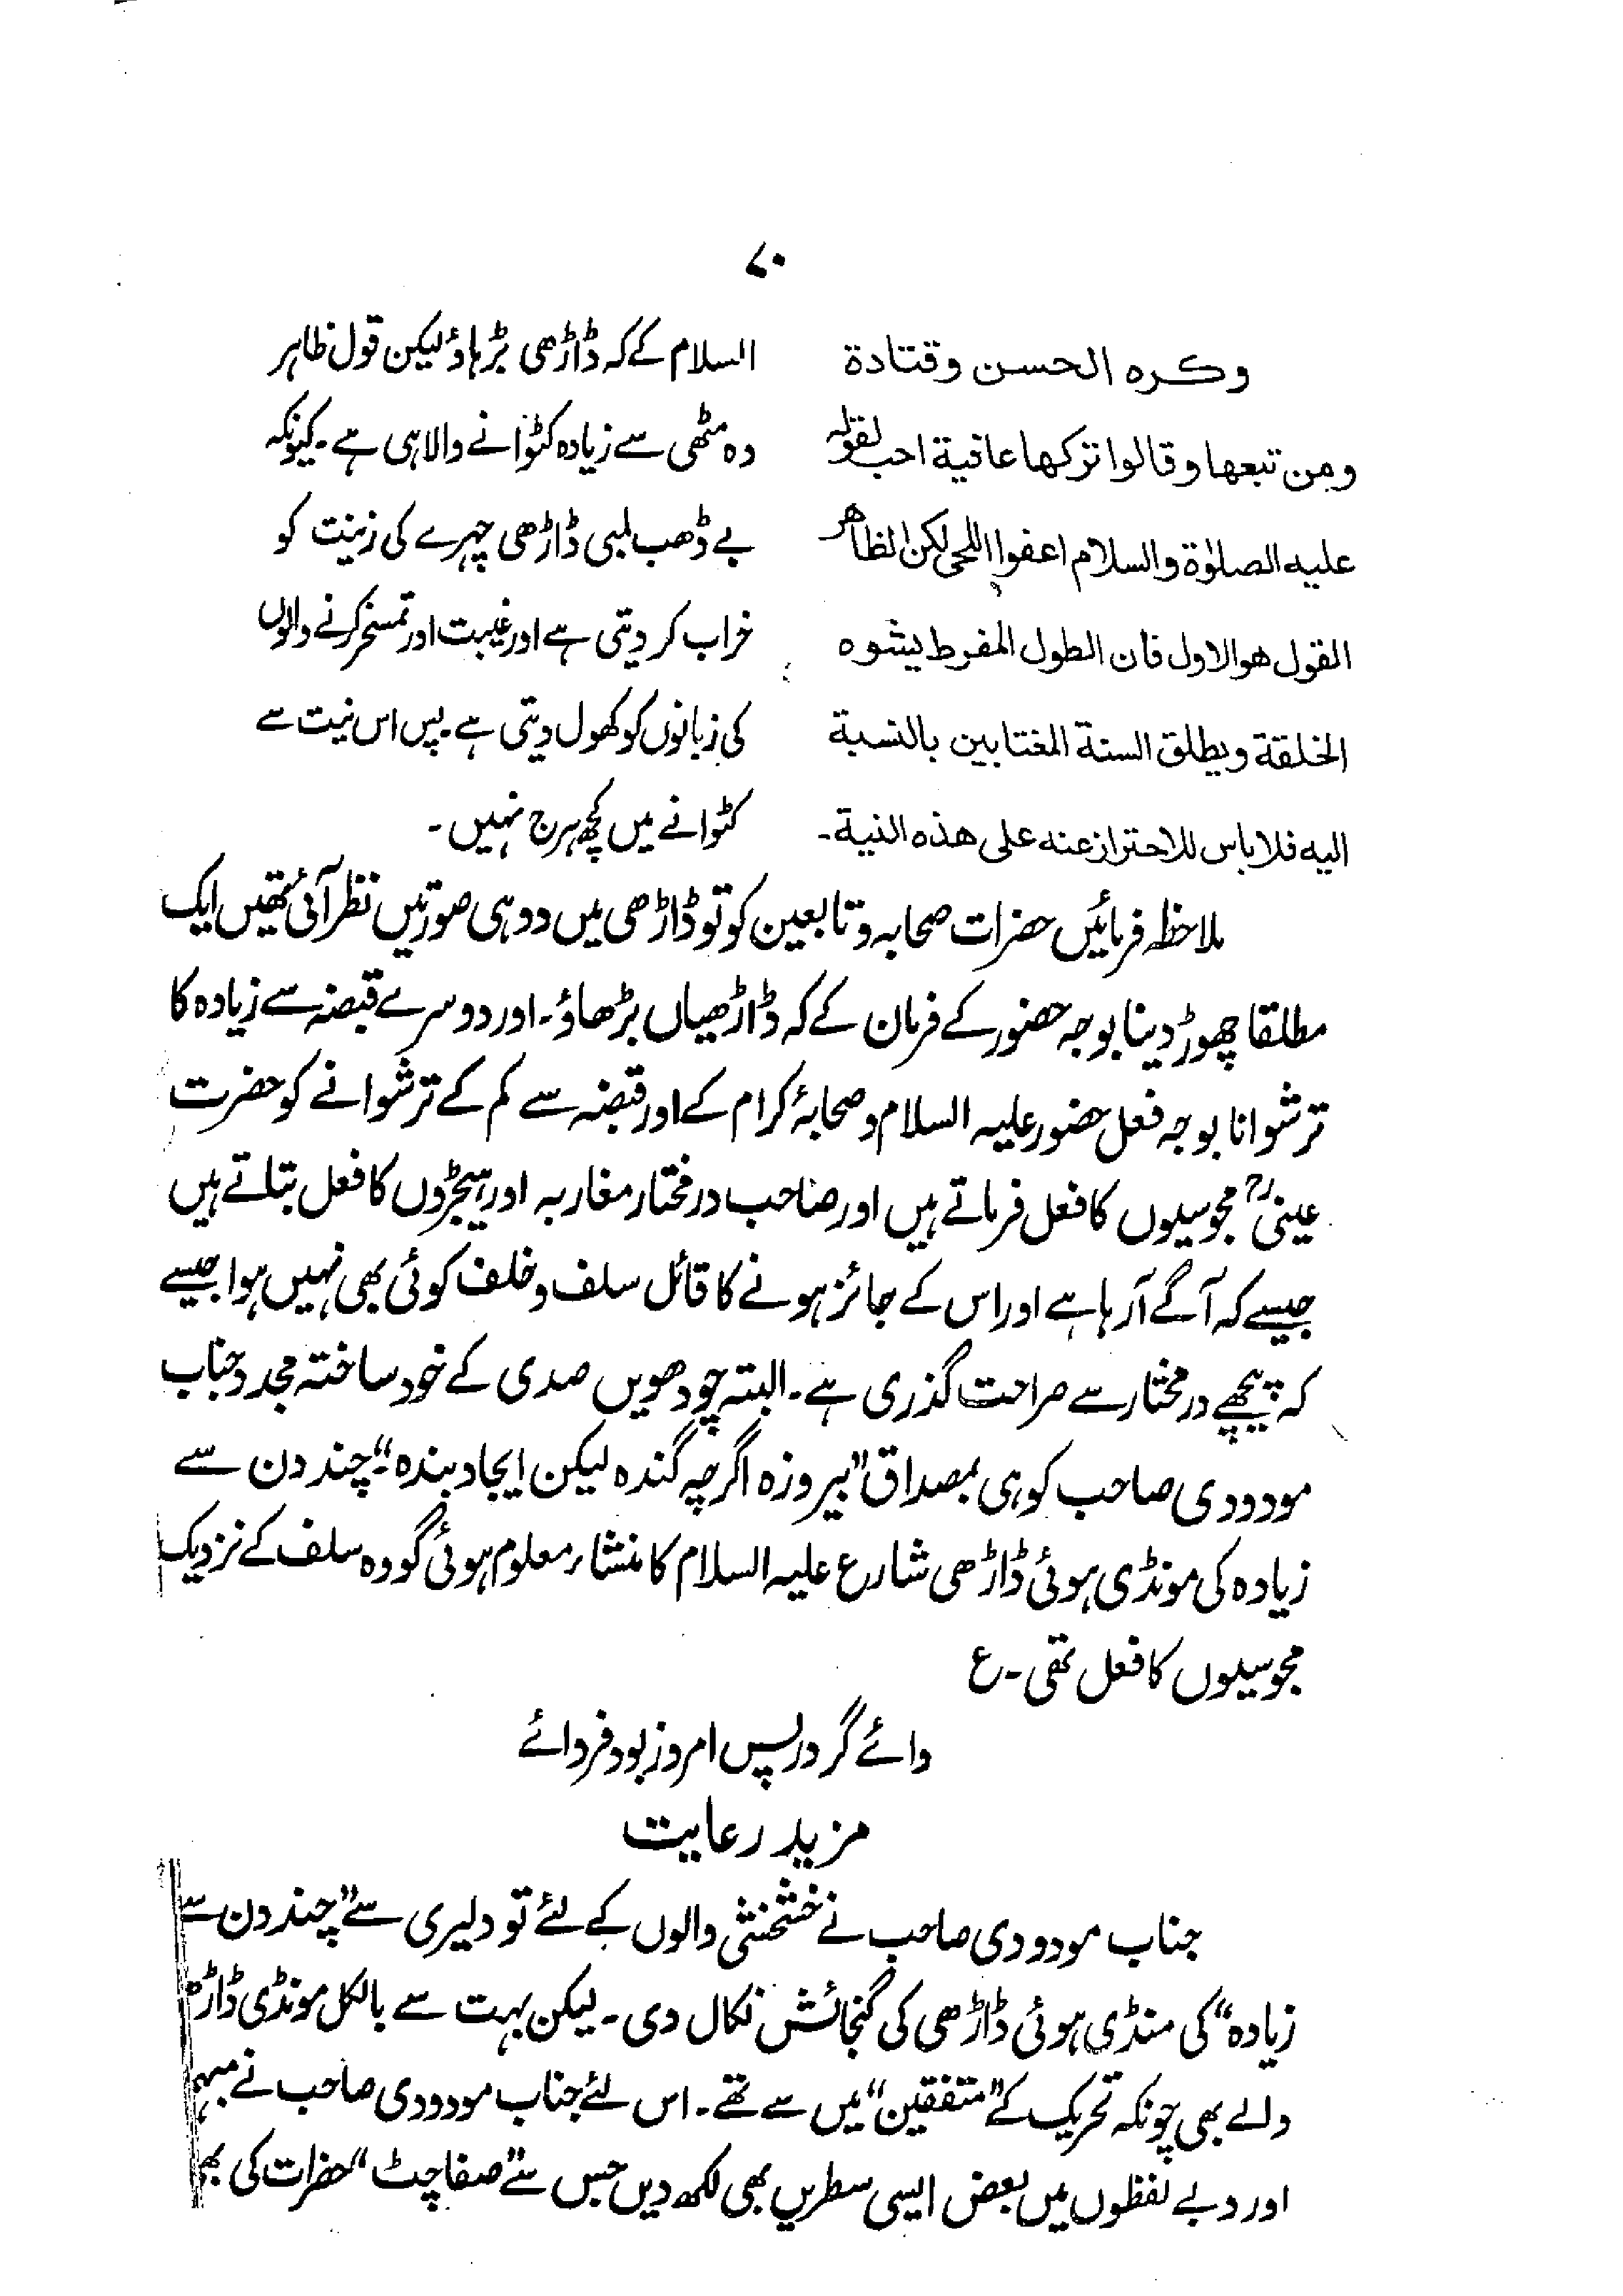 ۷۰
وكره الحسن وقتادة
ومن تبعها وقالوا تركها عافية احب لقوله
عليه الصلوٰة والسلام اعفوا اللحى لكن الظاهر
القول هو الاول فان الطول المفرط يشوه
الخلقة ويطلق السنة المغتابين بالنسبة
اليه فلا باس للاحتراز عنه على هذه النية۔
السلام کے کہ ڈاڑھی بڑہاؤ لیکن قول ظاہر
وہ مٹھی سے زیادہ کٹوانے والا ہی ہے۔ کیونکہ
بے ڈھب لمبی ڈاڑھی چہرے کی زینت کو
خراب کر دیتی ہے اور غیبت اور تمسخر کرنے والوں
کی زبانوں کو کھول دیتی ہے۔ پس اس نیت سے
کٹوانے میں کچھ ہرج نہیں۔
ملاحظہ فرمائیں حضرات صحابہ و تابعین کو تو ڈاڑھی میں دو ہی صورتیں نظر آئی تھیں ایک
مطلقا چھوڑ دینا بوجہ حضور کے فرمان کے کہ ڈاڑھیاں بڑھاؤ۔ اور دوسرے قبضہ سے زیادہ کا
ترشوانا بوجہ فعل حضور علیہ السلام و صحابۂ کرام کے اور قبضہ سے کم کے ترشوانے کو حضرت
عینیؒ مجوسیوں کا فعل فرماتے ہیں اور صاحب درمختار مغاربہ اور ہیجڑوں کا فعل بتاتے ہیں
جیسے کہ آگے آرہا ہے اور اس کے جائز ہونے کا قائل سلف و خلف کوئی بھی نہیں ہوا جیسے
کہ پیچھے درمختار سے صراحت گذری ہے۔ البتہ چودھویں صدی کے خود ساختہ مجدد جناب
مودودی صاحب کو ہی بمصداق "بیروزہ اگرچہ گندہ لیکن ایجاد بندہ"۔ چند دن سے
زیادہ کی مونڈی ہوئی ڈاڑھی شارع علیہ السلام کا منشاء معلوم ہوئی گو وہ سلف کے نزدیک
مجوسیوں کا فعل تھی۔ ع
وائے گر در پس امروز بود فردائے
مزید رعایت
جناب مودودی صاحب نے خشخشی والوں کے لئے تو دلیری سے "چند دن سے
زیادہ" کی منڈی ہوئی ڈاڑھی کی گنجائش نکال دی۔ لیکن بہت سے بالکل مونڈی ڈاڑھ
والے بھی چونکہ تحریک کے "متفقین" میں سے تھے۔ اس لئے جناب مودودی صاحب نے مبہم
اور دبے لفظوں میں بعض ایسی سطریں بھی لکھ دیں جس سے "صفاچٹ" حضرات کی بھی